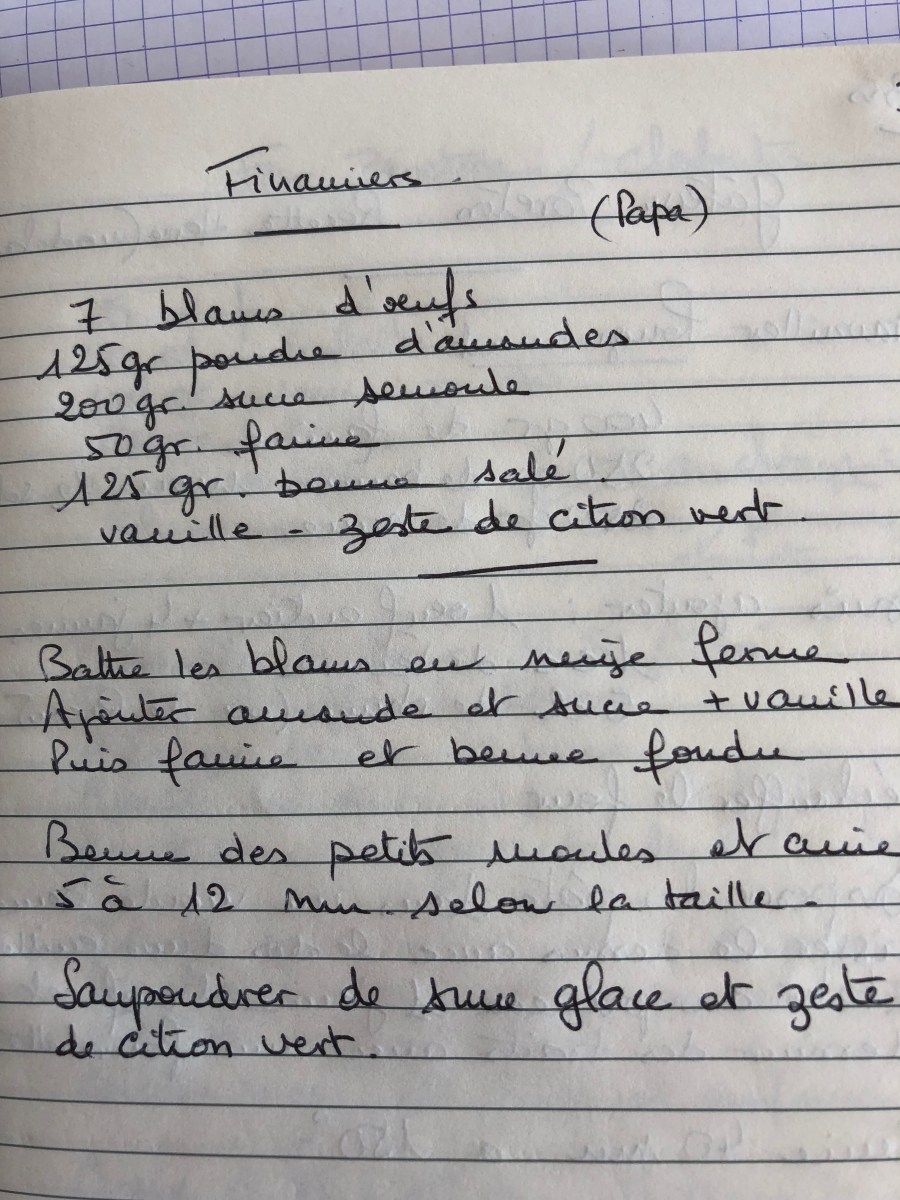 Financiers.
(Papa)
7 blancs d'oeufs
125gr poudre d'amandes
200gr. sucre semoule
50gr. farine
125 gr. beurre salé.
vanille - zeste de citron vert.
Battre les blancs en neige ferme
Ajouter amande et sucre + vanille
Puis farine et beurre fondu
Beurre des petits moules et cuire
5 à 12 mn. selon la taille.
Saupoudrer de sucre glace et zeste
de citron vert.